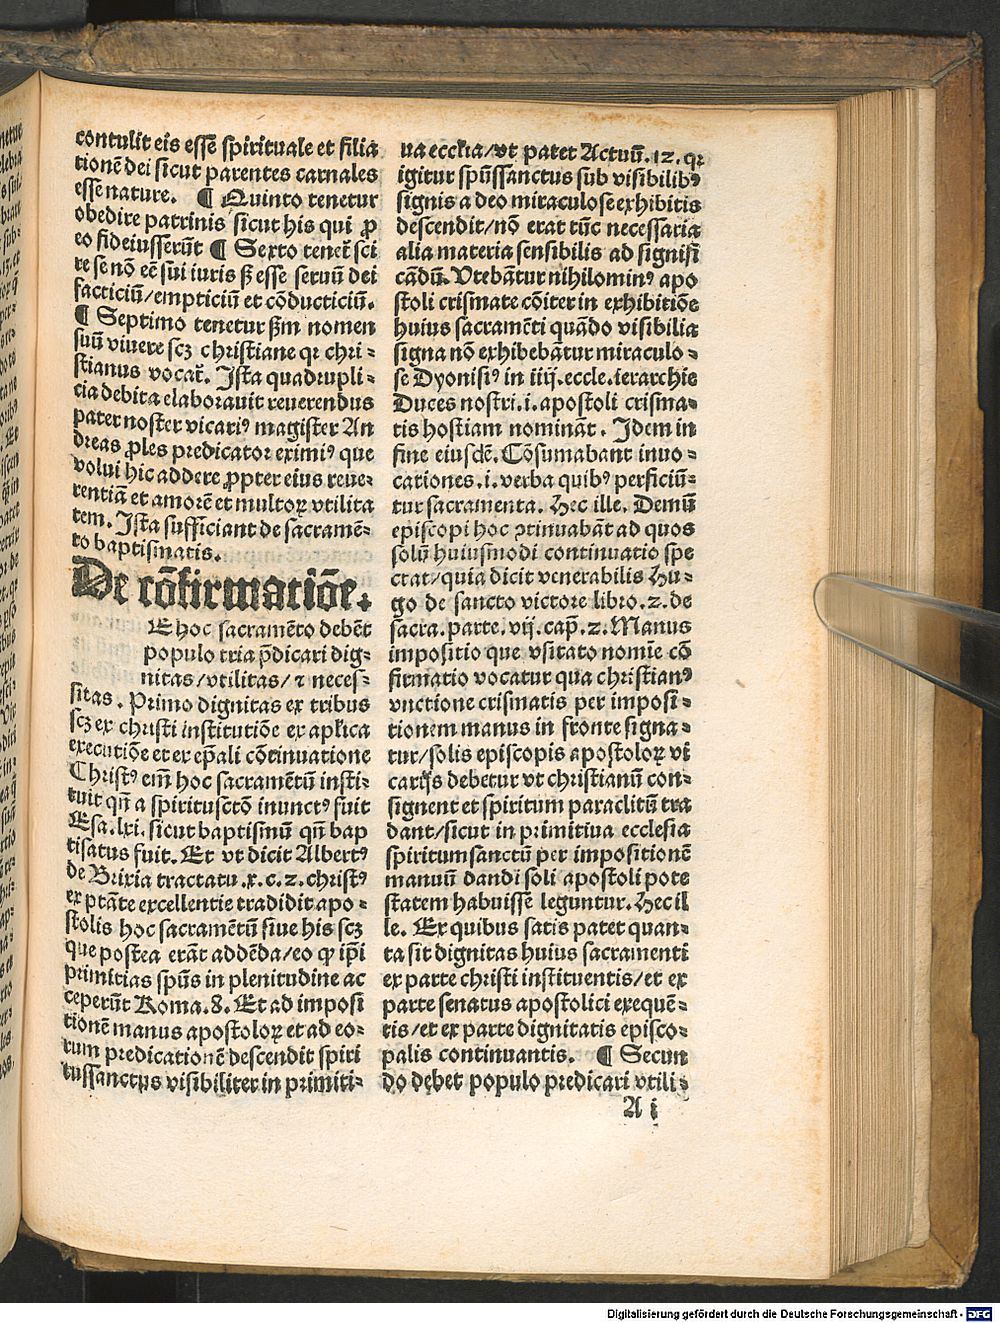 contulit eis esse spirituale et filia
tionē dei sicut parentes carnales
esse nature. ¶ Quinto tenetur
obedire patrinis sicut his qui ꝓ
eo fideiusserūt ¶ Sexto tenet᷑ sci
re se nō eē sui iuris sꝫ esse seruū dei
facticiū/empticiū et cōducticiū.
¶ Septimo tenetur ẜm nomen
suū viuere scꝫ christiane qꝛ chri⸗
stianus vocat᷑. Ista quadrupli⸗
cia debita elaborauit reuerendus
pater noster vicariꝰ magister An
dreas ꝓles predicator eximiꝰ que
volui hic addere ꝓpter eius reue⸗
rentiā et amorē et multoꝝ vtilita
tem. Ista sufficiant de sacramē⸗
to baptismatis.
De cōfirmatiōe.
E hoc sacramēto debēt
populo tria p̄dicari dig⸗
nitas/vtilitas/⁊ neces⸗
sitas. Primo dignitas ex tribus
scꝫ ex christi institutiōe ex aplica
executiōe et ex ep̄ali cōtinuatione
Christꝰ em̄ hoc sacramētū insti⸗
tuit qn̄ a spiritusctō inunctꝰ fuit
Esa.lxi. sicut baptismū qn̄ bap
tisatus fuit. Et vt dicit Albertꝰ
de Brixia tractatu.x.c.2.christꝰ
ex ptāte excellentie tradidit apo⸗
stolis hoc sacramētū siue his scꝫ
que postea erāt addēda/eo ꝙ ip̄i
primitias spūs in plenitudine ac
ceperūt Roma.8. Et ad imposi
tionē manus apostoloꝝ et ad eo⸗
rum predicationē descendit spiri
tussanctus visibiliter in primiti⸗
ua ecclia/vt patet Actuū.12. qꝛ
igitur spūssanctus sub visibilibꝰ
signis a deo miraculose exhibitis
descendit/nō erat tūc necessaria
alia materia sensibilis ad signifi
cādū. Vtebāt̄ur nihilominꝰ apo
stoli crismate cōiter in exhibitiōe
huius sacramēti quādo visibilia
signa nō exhibebātur miraculo⸗
se Dyonisiꝰ in iiij.eccle.ierarchie
Duces nostri.i.apostoli crisma⸗
tis hostiam nomināt. Idem in
fine eiusdē. Cōsumabant inuo⸗
cationes.i.verba quibꝰ perficiū⸗
tur sacramenta. Hec ille. Demū
episcopi hoc ꝯtinuabāt ad quos
solū huiusmodi continuatio spe
ctat/quia dicit venerabilis Hu⸗
go de sancto victore libro.2.de
sacra.parte.vij.cap̄.2. Manus
impositio que vsitato nomīe cō
firmatio vocatur qua christianꝰ
vnctione crismatis per imposi⸗
tionem manus in fronte signa⸗
tur/solis episcopis apostoloꝝ vi
carijs debetur vt christianū con⸗
signent et spiritum paraclitū tra
dant/sicut in primitiua ecclesia
spiritumsanctū per impositionē
manuū dandi soli apostoli pote
statem habuisse leguntur. Hec il
le. Ex quibus satis patet quan⸗
ta sit dignitas huius sacramenti
ex parte christi instituentis/et ex
parte senatus apostolici exequē⸗
tis/et ex parte dignitatis episco⸗
palis continuantis. ¶ Secun
do debet populo predicari vtili⸗
A i
Digitalisierung gefördert durch die Deutsche Forschungsgemeinschaft - DFG